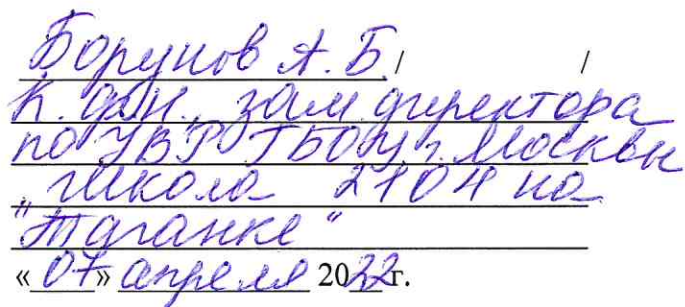 Борунов А.Б. / /
к.фил.н., зам. директора
по УВР ГБОУ г. Москвы
"Школа 2104 на
Таганке"
« 07 » апреля 2022 г.